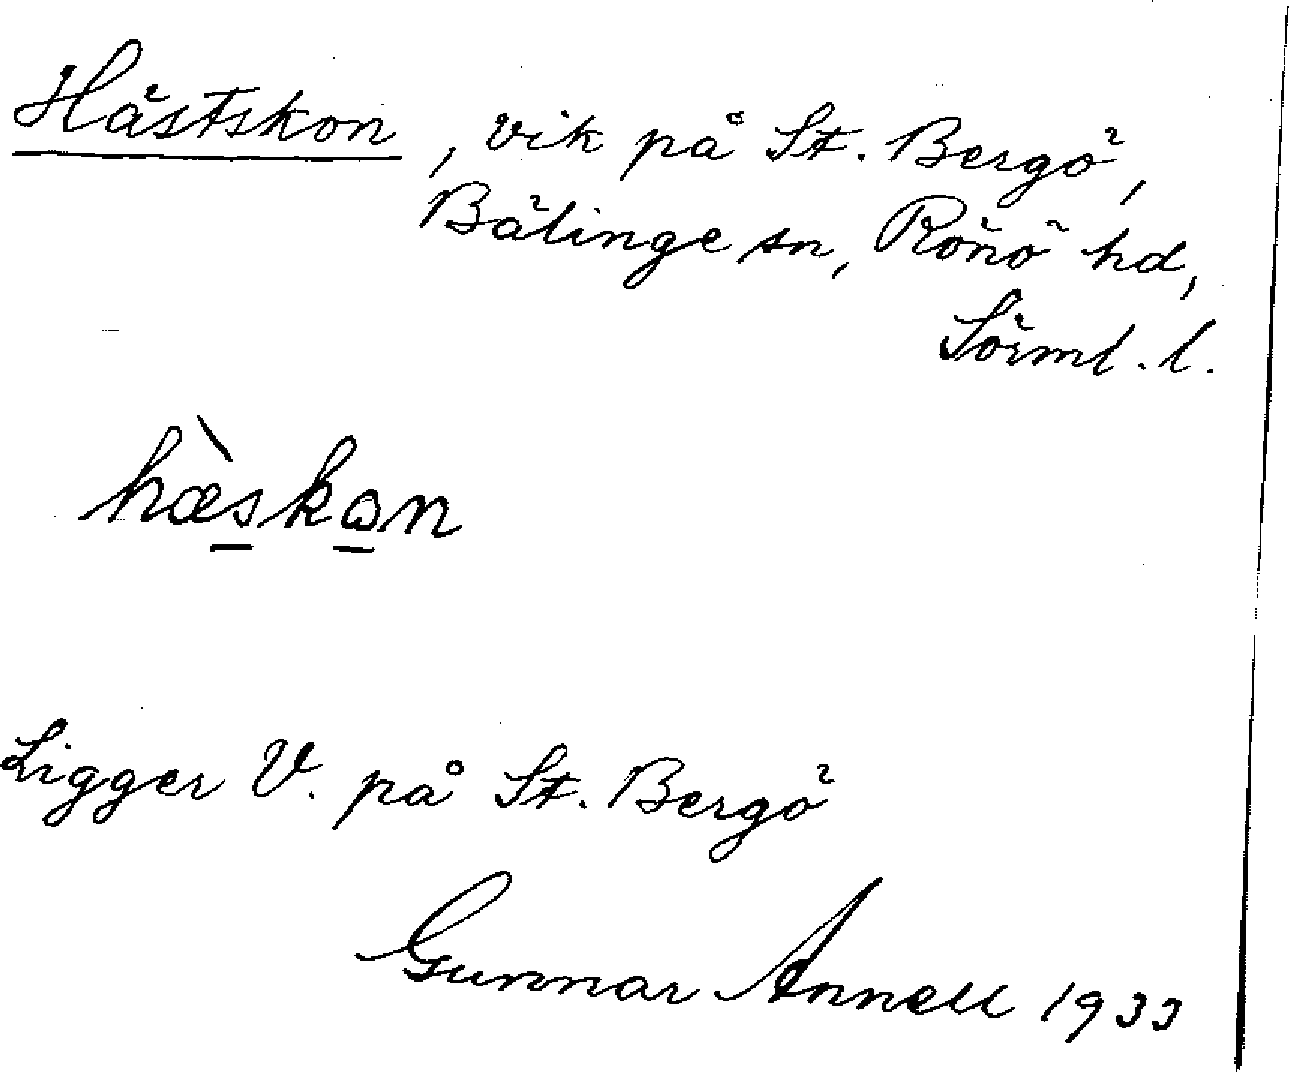 Hästskon, vik på St. Bergö,
Bälinge sn, Rönö hd,
Sörml. l.
hæ̀skan
Ligger V. på St. Bergö
Gunnar Annell 1933